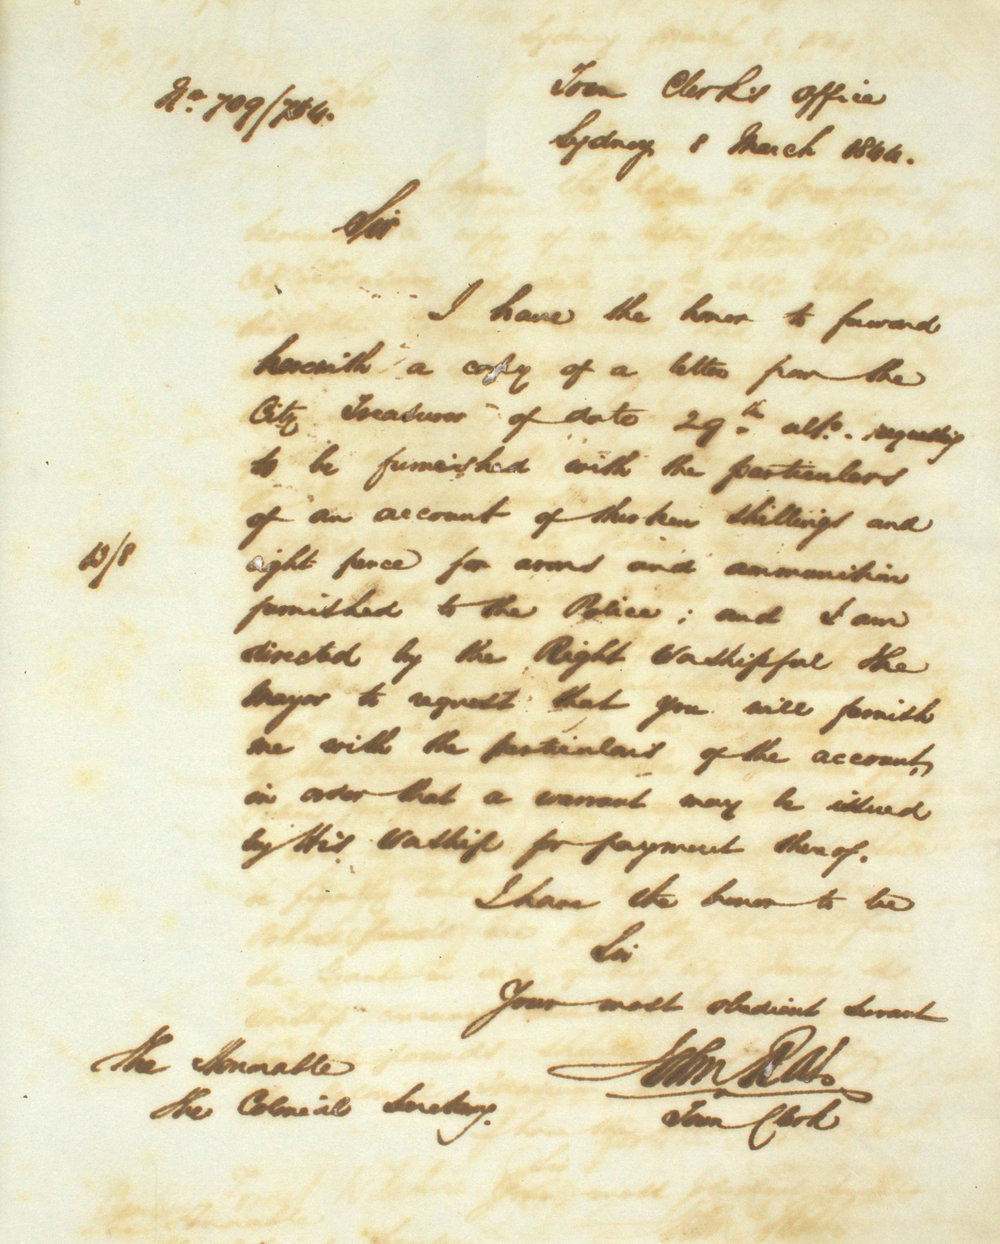 No 709/784.
Town Clerk's Office
Sydney 8 March 1844.
Sir
I have the honor to forward
herewith a copy of a letter from the
City Treasurer of date 29th ulto. requesting
to be furnished with the particulars
of an account of thirteen shillings and
eight pence for arms and ammunition
13/8
furnished to the Police; and I am
directed by the Right Worshipful the
Mayor to request that you will furnish
me with the particulars of the account,
in order that a warrant may be issued
by His Worship for payment thereof.
I have the honor to be
Sir
Your most obedient Servant
John
Town Clerk
The Honorable
The Colonial Secretary.